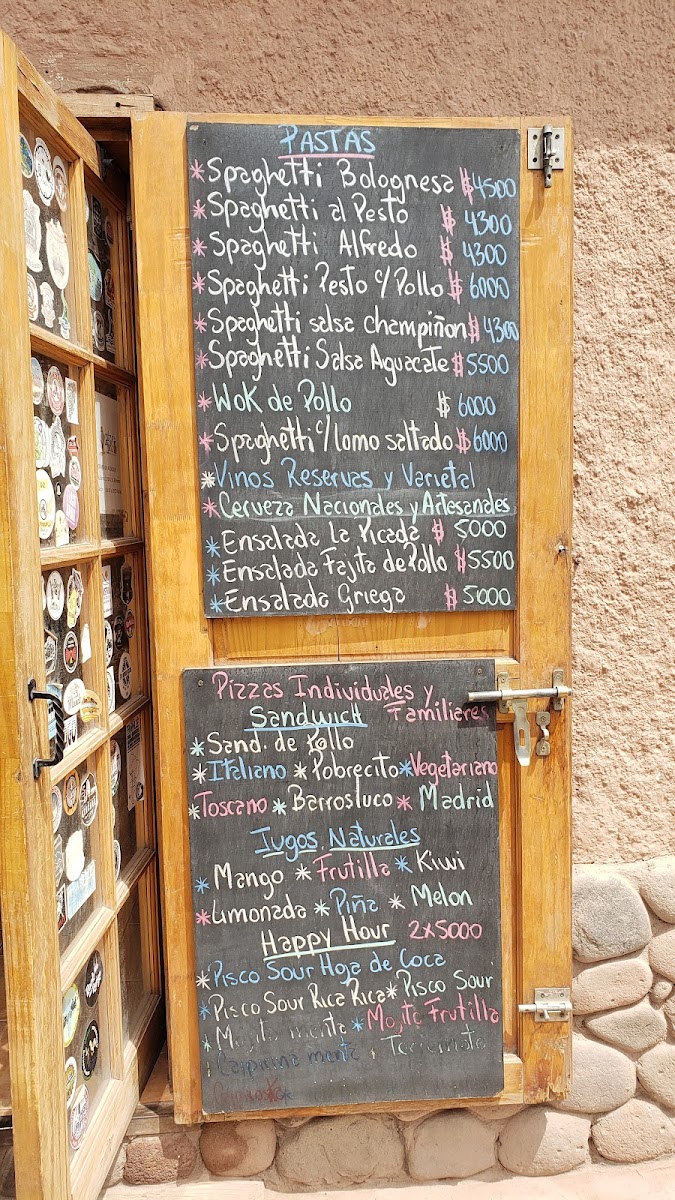 PASTAS
* Spaghetti Bolognesa $4500
* Spaghetti al Pesto $ 4300
* Spaghetti Alfredo $ 4300
* Spaghetti Pesto c/ Pollo $ 6000
* Spaghetti salsa champiñon $ 4300
* Spaghetti Salsa Aguacate $5500
* Wok de Pollo $ 6000
* Spaghetti c/ lomo saltado $6000
* Vinos Reservas y Varietal
* Cerveza Nacionales y Artesanales
* Ensalada La Picada $ 5000
* Ensalada Fajita de Pollo $5500
* Ensalada Griega $ 5000
Pizzas Individuales y
Sandwich Familiares
* Sand. de Pollo
* Italiano * Pobrecito * Vegetariano
* Toscano * Barrosluco * Madrid
Jugos Naturales
* Mango * Frutilla * Kiwi
* Limonada * Piña * Melon
Happy Hour 2x5000
* Pisco Sour Hoja de Coca
* Pisco Sour Rica Rica * Pisco Sour
* Mojito menta * Mojito Frutilla
menta